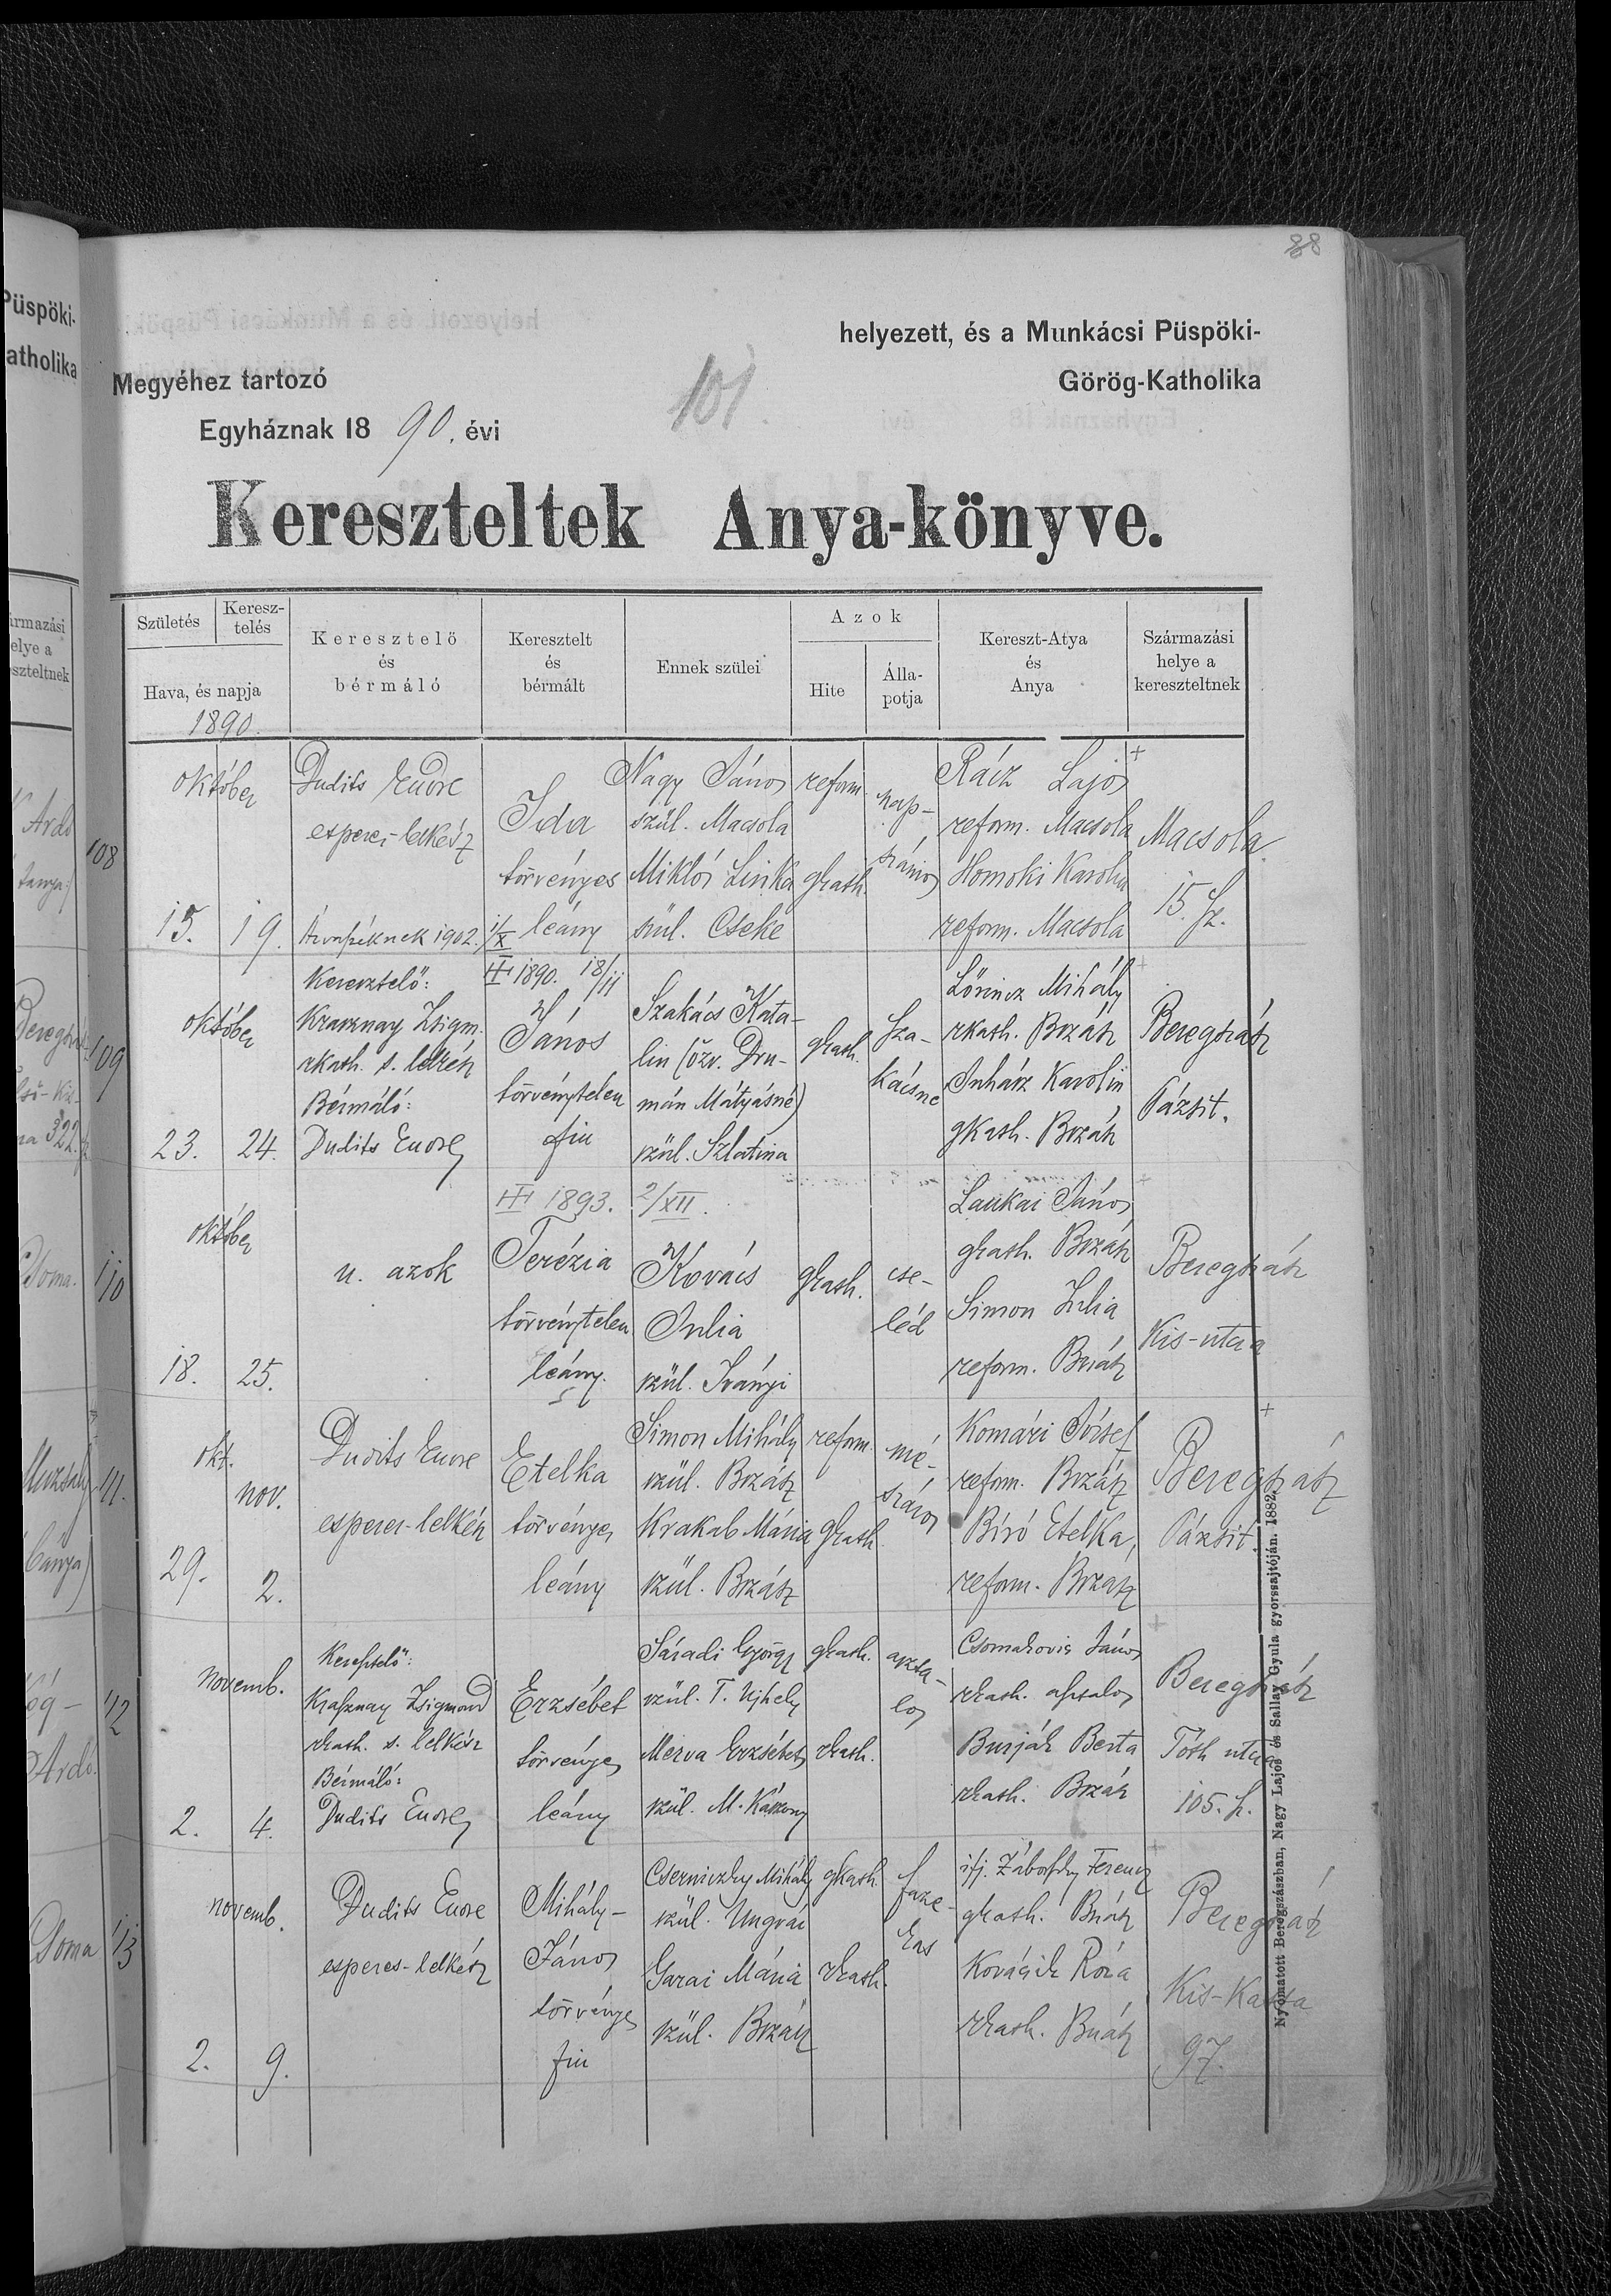 88
Püspöki-
atholika
helyezett, és a Munkácsi Püspöki-
Megyéhez tartozó
Görög-Katholika
Egyháznak 18 90. évi
101
Kereszteltek Anya-könyve.
ármazási
elye a
eszteltnek
Születés
Keresz-
telés
Hava, és napja
1890.
Keresztelö
és
bérmáló
Keresztelt
és
bérmált
Ennek szülei
Azok
Hite
Álla-
potja
Kereszt-Atya
és
Anya
Származási
helye a
kereszteltnek
108
október
15. 19.
Dudits Endre
esperes-lelkész
Árvaszéknek 1902. 1/X
Ida
törvényes
leány
Nagy János
szül. Macsola
Miklós Linka
szül. Cseke
reform.
gkath.
nap-
számos
Rácz Lajos
reform. Macsola
Homoki Karolin
reform. Macsola
Macsola
15. sz.
109
október
23. 24.
Keresztelő:
Krasznay Zsigm.
rkath. s. lelkész
Bérmáló:
Dudits Endre
1890. 18/11
János
törvénytelen
fiu
Szakács Kata-
lin (özv. Dru-
mán Mátyásné)
szül. Szlatina
gkath.
sza-
kácsne
Lőrincz Mihály
rkath. Bszász
Juhász Karolin
gkath. Bszász
Beregszász
Pázsit.
110
október
18. 25.
u. azok
1893. 2/XII.
Terézia
törvénytelen
leány.
Kovács
Julia
szül. Iványi
gkath.
cse-
léd
Laukai János
gkath. Bszász
Simon Julia
reform. Bszász
Beregszász
Kis-utca
111.
okt.
nov.
29. 2.
Dudits Endre
esperes-lelkész
Etelka
törvényes
leány
Simon Mihály
szül. Bszász
Krakab Mária
szül. Bszász
reform.
gkath.
mé-
száros
Komári József
reform. Bszász
Bíró Etelka,
reform. Bszász
Beregszász
Pázsit.
112
novemb.
2. 4.
Keresztelő:
Krasznay Zsigmond
rkath. s. lelkész
Bérmáló:
Dudits Endre
Erzsébet
törvényes
leány
Sáradi György
szül. T. Ujhely
Merva Erzsébet
szül. M. Kászony
gkath.
rkath.
aszta-
los
Csomahovis János
rkath. asztalos
Burják Berta
rkath. Bszász
Beregszász
Tóth utca
105. sz.
113
novemb.
2. 9.
Dudits Endre
esperes-lelkész
Mihály-
János
törvényes
fiu
Cserniczky Mihály
szül. Ungvár
Garai Mária
szül. Bszász
gkath.
rkath.
faze-
kas
ifj. Záborszky Ferencz
gkath. Bszász
Kovácsik Róza
rkath. Bszász
Beregszász
97.
Nyomatott Beregszászban, Nagy Lajos és Sallay Gyula gyorssajtóján. 1882.